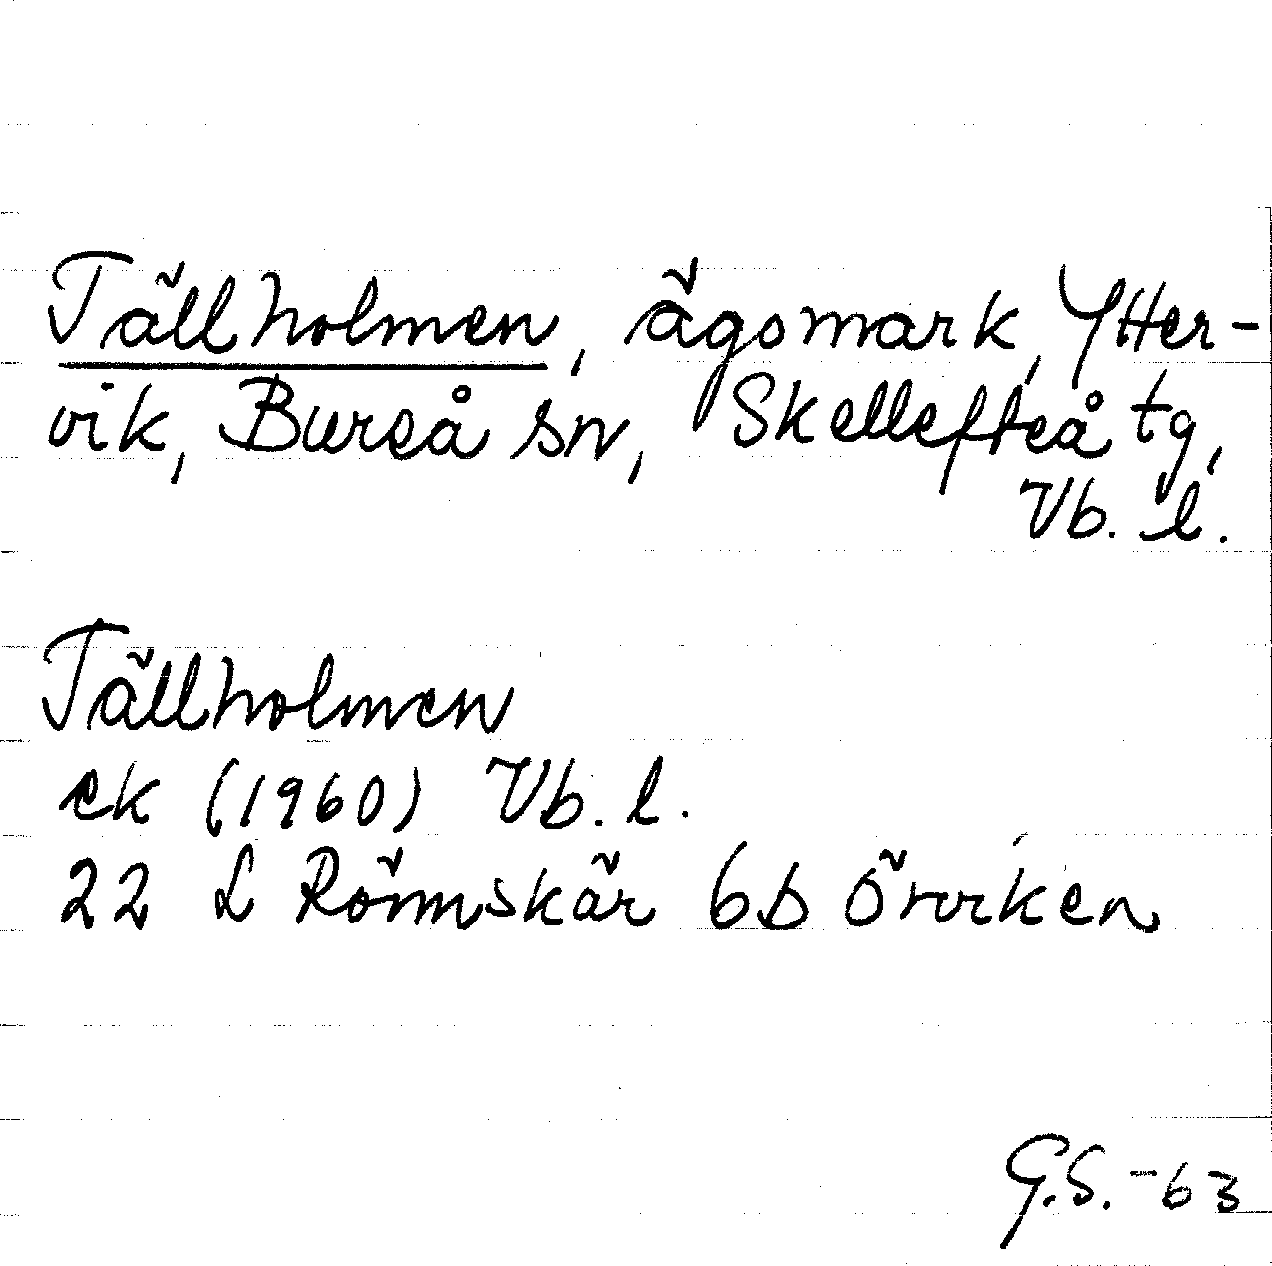 Tällholmen, ägomark, Ytter-
vik, Bureå sn, Skellefteå tg,
Vb. l.
Tällholmen
ek (1960) Vb. l.
22 L Rönnskär 6b Örviken
G.S. -63